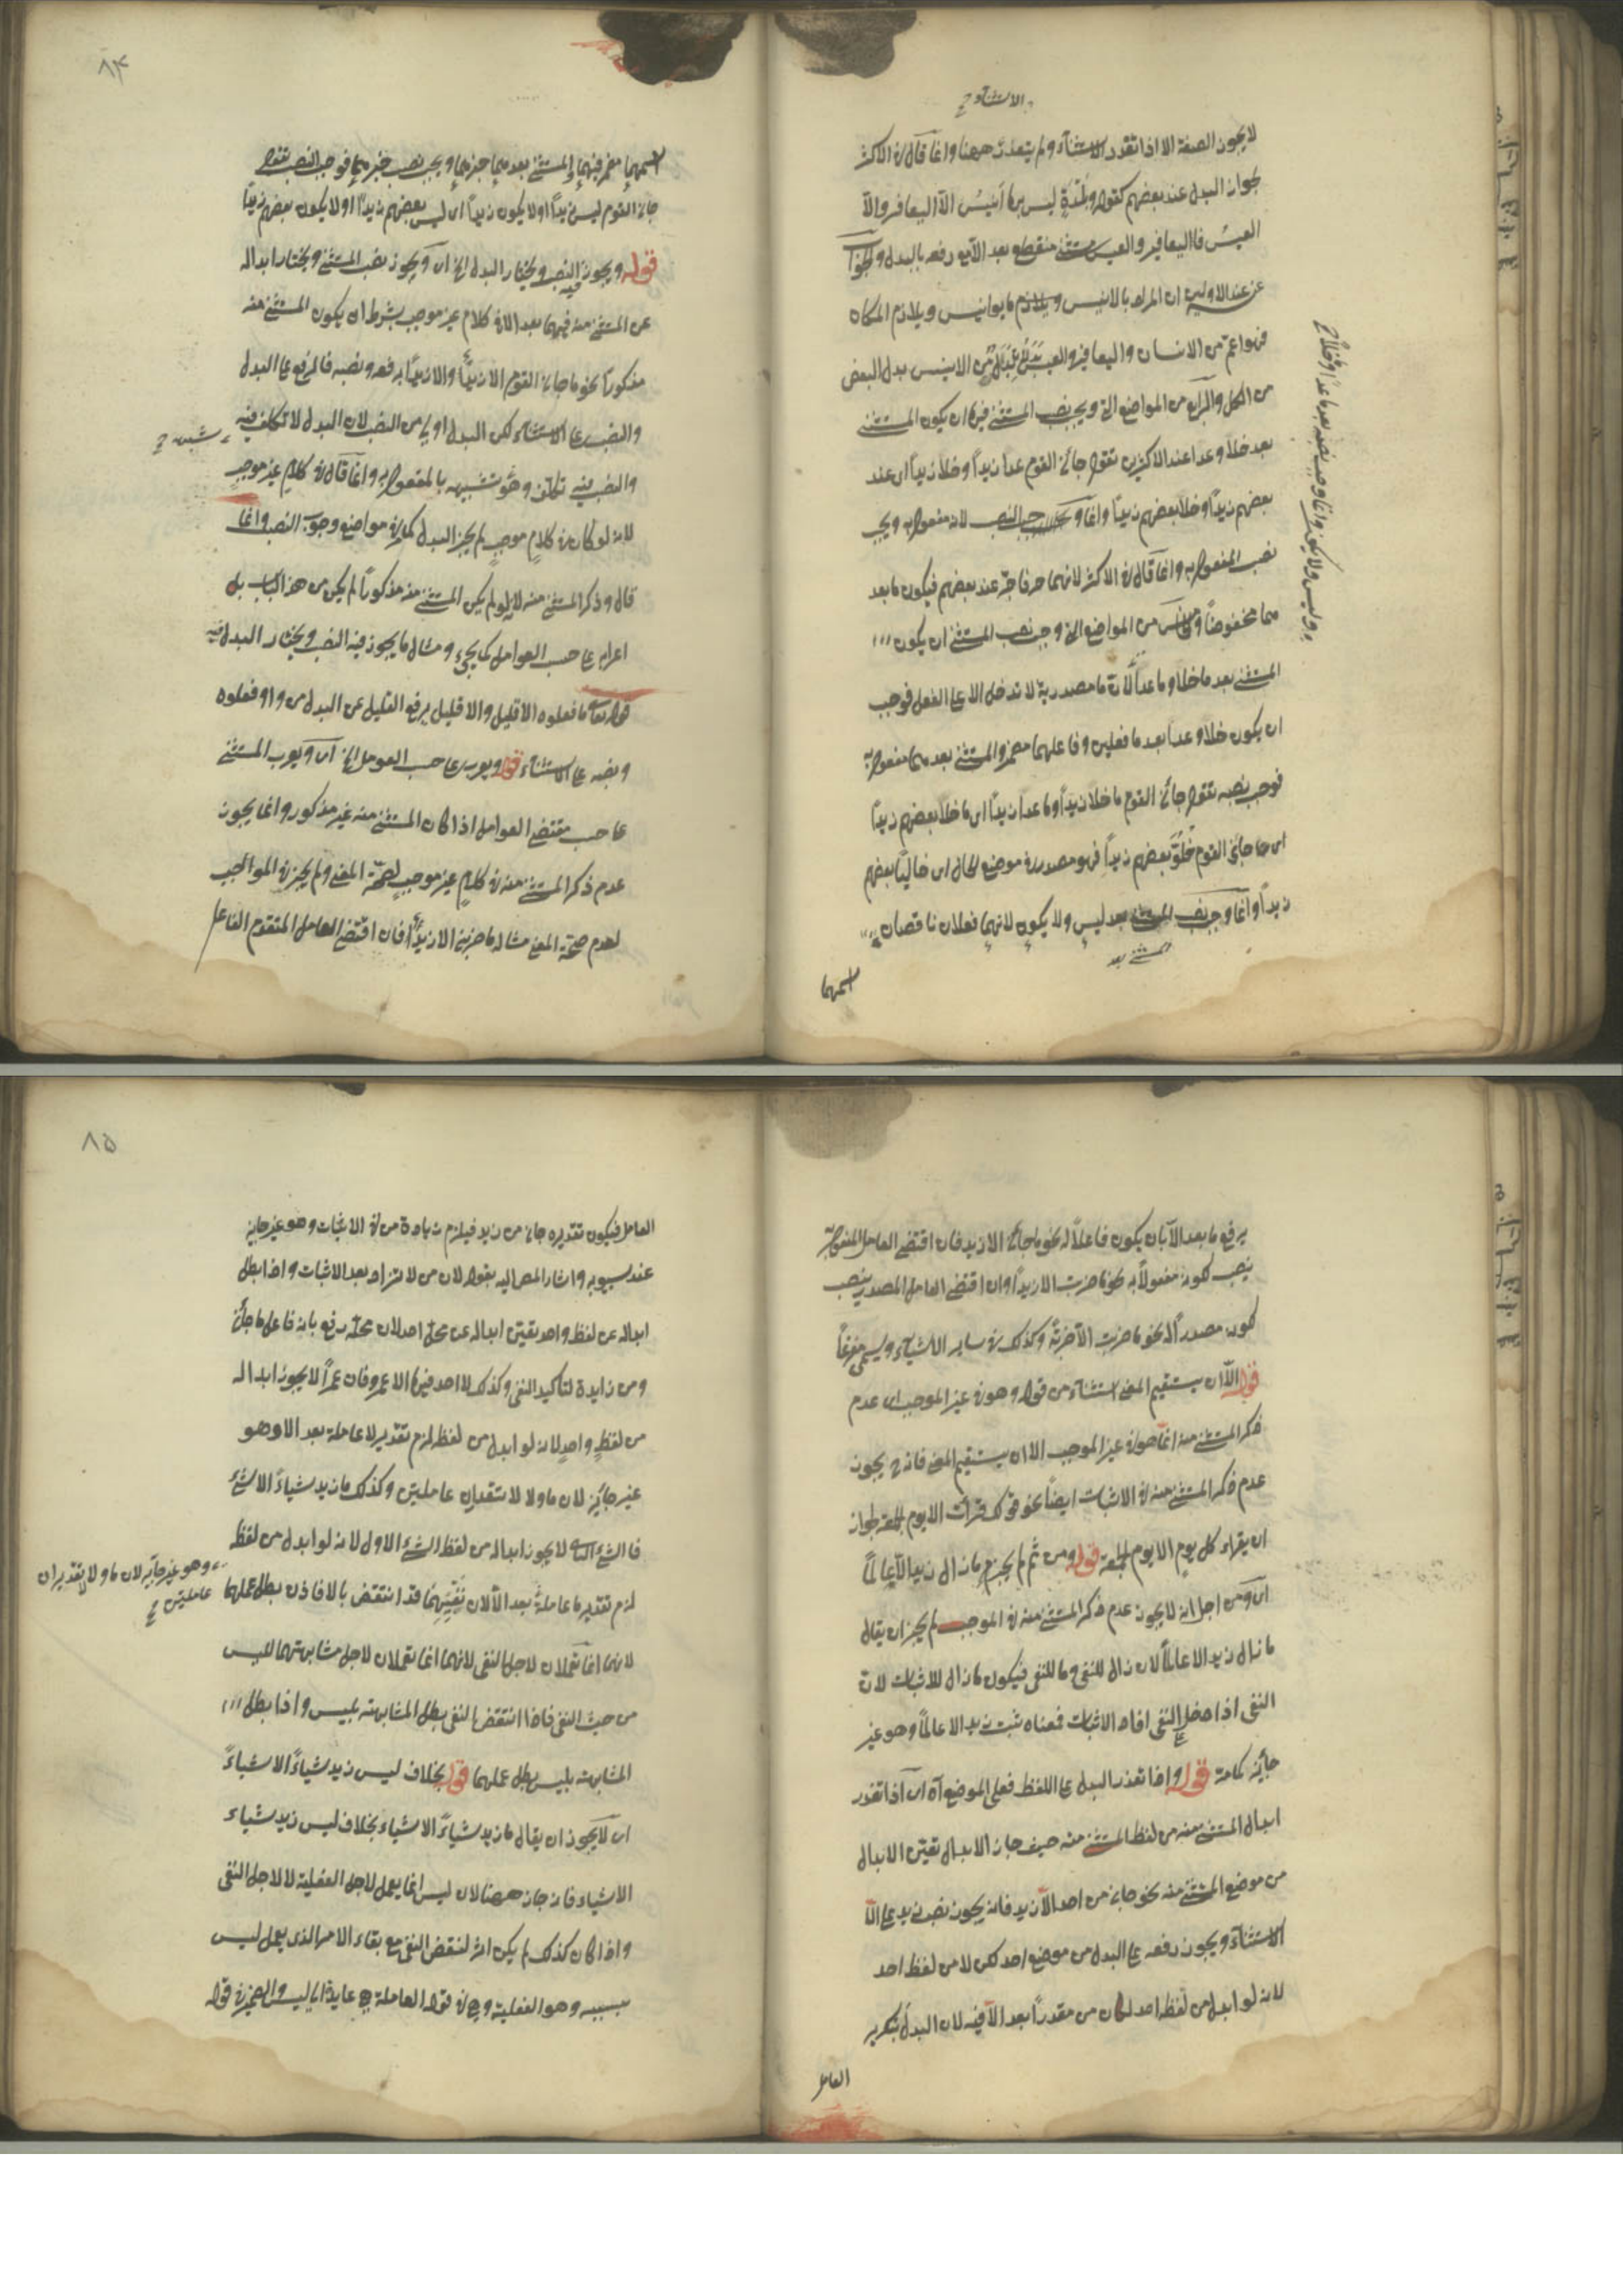 الاستثناء ح
لا يجوز الصفة الا اذا تعذر الاستثناء ولم يتعذر ههنا وانما قال في الاكثر
لجواز البدل عند بعضهم كقوله وبلدة ليس بها انيس الا اليعافير والا
العيس فاليعافير والعيس مستثنى منقطع بعد الا مع رفعه بالبدل والجواب
عن عند الاولين ان المراد بالانيس ويلازم ما يوانيس ويلازم المكان
فهو اعم من الانسان واليعافير والعيس من الانيس بدل البعض
من الكل والرابع من المواضع التي ويجب نصب المستثنى فيها ان يكون المستثنى
بعد خلا وعدا عند الاكثرين تقول جائني القوم عدا زيداً وخلا زيداً اى عند
بعضهم زيداً وخلا بعضهم زيداً وانما وجب النصب لانه مفعول به ويجب
نصب المفعول به وانما قال في الاكثر لانهما حرفا جرّ عند بعضهم فيكون ما بعد
هما مخفوضاً والخامس من المواضع التي وجب نصب المستثنى ان يكون
المستثنى بعد ما خلا وما عدا لان ما مصدرية لا تدخل الا على الفعل فوجب
ان يكون خلا وعدا بعد ما فعلين وفاعلهما مضمر والمستثنى بعد هما مفعول به
فوجب نصبه تقول جائني القوم ما خلا زيداً وما عدا زيداً اى ما خلا بعضهم زيداً
اى ما جائني القوم خلوّ بعضهم زيداً فهو مصدر في موضع الحال اى خالياً بعضهم
زيداً وانما وجب نصب المستثنى بعد ليس ولا يكون لانهما فعلان ناقصان
المستثنى بعد
اسمهما
وليس ولا يكون وانما وجب نصبه بعد ما عدا وخلا ح
٨٤
اسمهما مضمر فيهما والمستثنى بعد هما خبرهما ويجب نصب خبرهما فوجب النصب تقول
جائني القوم ليس زيداً او لا يكون زيداً اى ليس بعضهم زيداً او لا يكون بعضهم زيداً
قوله ويجوز فيه النصب ويختار البدل الخ اى ويجوز نصب المستثنى ويختار ابداله
عن المستثنى منه فيهما بعد الا في كلام غير موجب بشرط ان يكون المستثنى منه
مذكوراً نحو ما جائني القوم الا زيدٌ والا زيداً برفعه ونصبه فالرفع على البدل
والنصب على الاستثناء لكن البدل اولى من النصب لان البدل لا تكلف فيه
شبهه ح
والنصب فيه تكلف وهو تشبيهه بالمفعول به وانما قال في كلام غير موجب
لانه لو كان في كلامٍ موجبٍ لم يجز البدل كما في مواضع وجوب النصب وانما
قال وذكر المستثنى منه لانه لو لم يكن المستثنى منه مذكوراً لم يكن من هذا الباب بل
اعرابه على حسب العوامل كما يجيء ومثال ما يجوز فيه النصب ويختار البدل فيه
قوله تعالى ما فعلوه الا قليل والا قليلا برفع القليل عن البدل من واو فعلوه
ونصبه على الاستثناء قوله ويعرب على حسب العوامل الخ اى ويعرب المستثنى
على حسب مقتضى العوامل اذا كان المستثنى منه غير مذكور وانما يجوز
عدم ذكر المستثنى منه في كلامٍ غير موجبٍ لصحّة المعنى ولم يجز في الموجب
لعدم صحّة المعنى مثاله ما ضربني الا زيدٌ فان اقتضى العامل المتقدم الفاعل
يرفع ما بعد الا بان يكون فاعلاً له نحو ما جائني الا زيد فان اقتضى العامل المفعول به
نصب لكونه مفعولاً به نحو ما ضربت الا زيداً وان اقتضى العامل المصدر ينصب
لكونه مصدراً له نحو ما ضربت الا ضربةً وكذلك في ساير الاشياء ويسمى مفرغاً
قوله الا ان يستقيم المعنى استثناء من قوله وهو في غير الموجب اى عدم
ذكر المستثنى منه انما هو في غير الموجب الا ان يستقيم المعنى فانه ح يجوز
عدم ذكر المستثنى منه في الاثبات ايضاً نحو قولك قرأت الا يوم الجمعة لجواز
ان يقراء كل يوم الا يوم الجمعة قوله ومن ثم لم يجز ما زال زيد الا عالماً
اى ومن اجل انه لا يجوز عدم ذكر المستثنى منه في الموجب لم يجز ان يقال
ما زال زيد الا عالماً لان زال للنفى وما للنفى فيكون ما زال للاثبات لان
النفى اذا دخل على النفى افاد الاثبات فمعناه ثبت زيد الا عالماً وهو غير
جائز كما مر قوله واذا تعذر البدل على اللفظ فعلى الموضع آه اى اذا تعذر
ابدال المستثنى منه من لفظ المستثنى منه حيث جاز الابدال تعين الابدال
من موضع المستثنى منه نحو جائني من احد الا زيد فانه يجوز نصب زيد على الا
الاستثناء ويجوز رفعه على البدل من موضع احد لكن لا من لفظ احد
لانه لو ابدل من لفظ احد لكان من مقدراً بعد الا فيه لان البدل بتكرير
العامل
٨٥
العامل فيكون تقديره جائني من زيد فيلزم زيادة من في الاثبات وهو غير جايز
عند سيبويه واشار المص اليه بقوله لان من لا تزاد بعد الاثبات واذا بطل
ابداله عن لفظ واحد يقين ابداله عن محل احد لان محله رفع بانه فاعل ما جائني
ومن زايدة لتأكيد النفى وكذلك لا احد فيها الا عمرو فان عمراً لا يجوز ابداله
من لفظ واحدٍ لانه لو ابدل من لفظه لزم تقدير لا عاملة بعد الا وهو
غير جايز لان ما ولا لا تقدران عاملتين وكذلك ما زيد شياءً الا شئ
فالشئ الثانى لا يجوز ابداله من لفظ الشئ الاول لانه لو ابدل من لفظه
وهو غير جايز لان ما ولا لا تقدير ان
عاملتين ح
لزم تقدير ما عاملةً بعد الا لان نفيهما قد انتقض بالا فاذن بطل عملهما
لانهما انما تعملان لاجل النفى لانهما انما تعملان لاجل مشابهتهما لليس
من حيث النفى فاذا انتقض النفى بطل المشابهة بليس واذا بطل
المشابهة بليس بطل عملهما قوله بخلاف ليس زيد شياءً الا شياءً
اى لا يجوز ان يقال ما زيد شياءً الا شياء بخلاف ليس زيد شياء
الا شياء فانه جاز ههنا لان ليس انما يعمل لاجل الفعلية لا لاجل النفى
واذا كان كذلك لم يكن اثر لنقض النفى مع بقاء الامر الذى يعمل ليس
بسببه وهو الفعلية وهي في قوله العاملة هي عايدة الى ليس والضمير في قوله